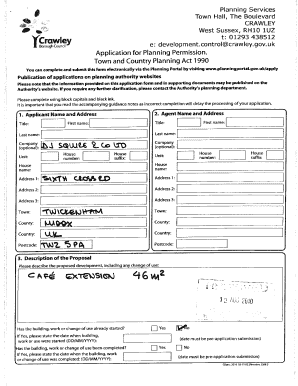 Planning Services
Town Hall, The Boulevard
CRAWLEY
West Sussex, RH10 1UZ
t: 01293 438512
e: development.control@crawley.gov.uk
Crawley
Borough Council
Application for Planning Permission.
Town and Country Planning Act 1990
You can complete and submit this form electronically via the Planning Portal by visiting www.planningportal.gov.uk/apply
Publication of applications on planning authority websites
Please note that the information provided on this application form and in supporting documents may be published on the
Authority's website. If you require any further clarification, please contact the Authority's planning department.
Please complete using block capitals and black ink.
It is important that you read the accompanying guidance notes as incorrect completion will delay the processing of your application.
1. Applicant Name and Address
Title: First name:
Last name:
Company (optional): DJ SQUIRE & CO LTD
Unit: House number: House suffix:
House name:
Address 1: SIXTH CROSS RD
Address 2:
Address 3:
Town: TWICKENHAM
County: MIDDX
Country: UK
Postcode: TW2 5PA
2. Agent Name and Address
Title: First name:
Last name:
Company (optional):
Unit: House number: House suffix:
House name:
Address 1:
Address 2:
Address 3:
Town:
County:
Country:
Postcode:
3. Description of the Proposal
Please describe the proposed development, including any change of use:
CAFÉ EXTENSION 46m²
Has the building, work or change of use already started? Yes No
If Yes, please state the date when building, work or use were started (DD/MM/YYYY): (date must be pre-application submission)
Has the building, work or change of use been completed? Yes No
If Yes, please state the date when the building, work or change of use was completed: (DD/MM/YYYY): (date must be pre-application submission)